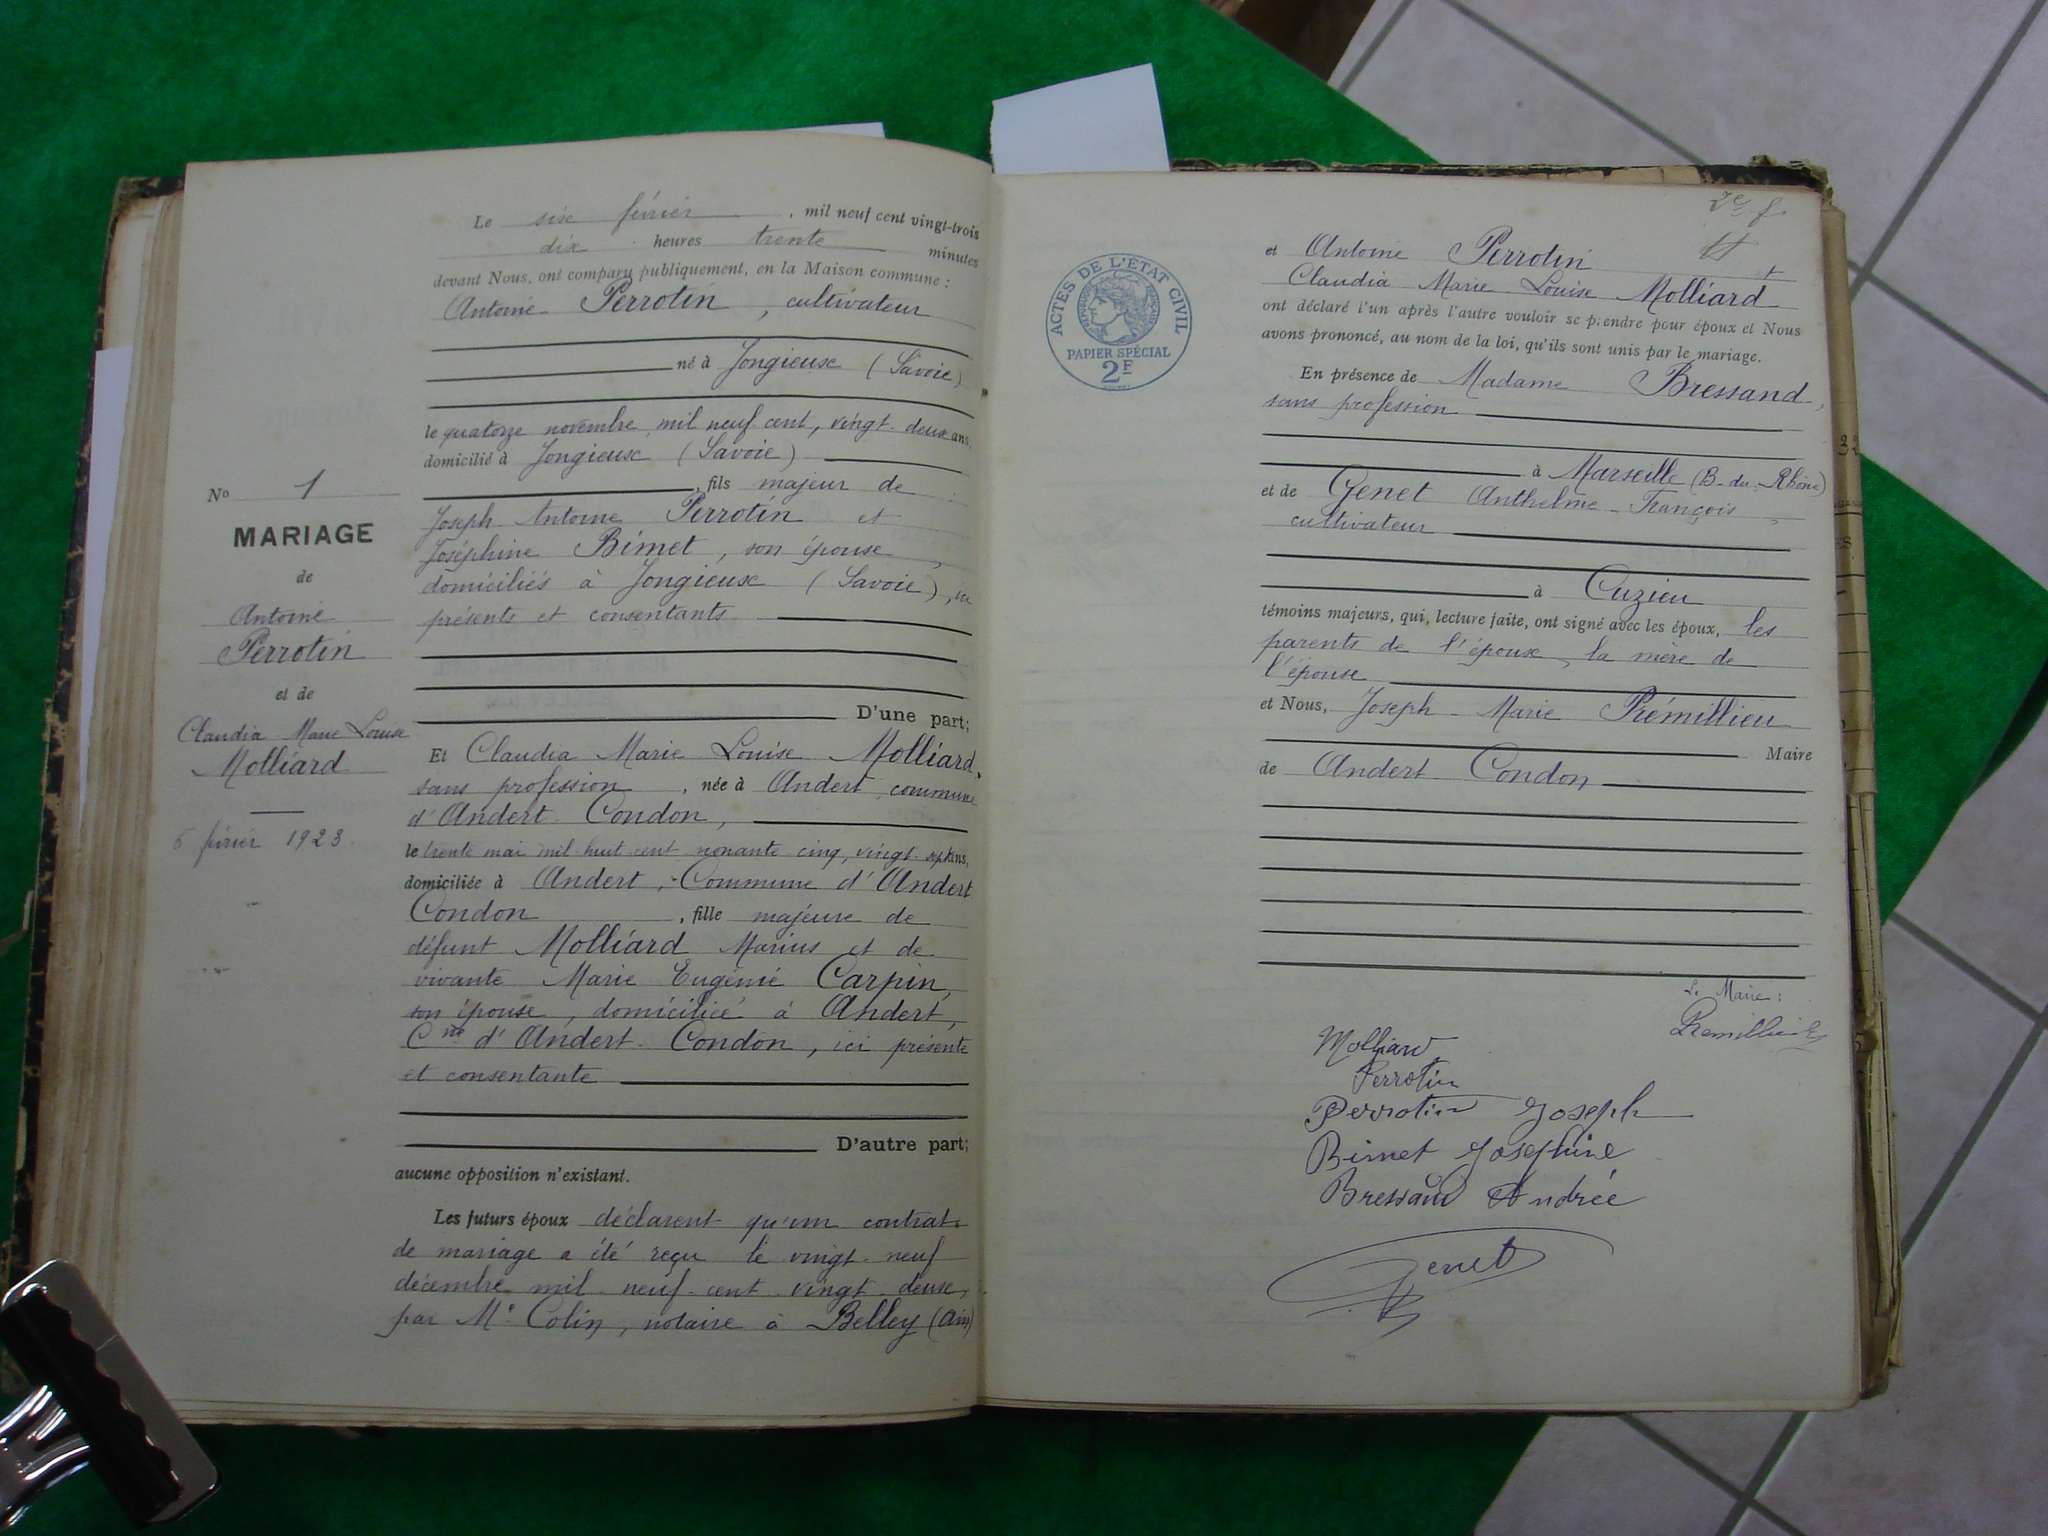 Le six février , mil neuf cent vingt-trois
dix heures trente minutes
devant Nous, ont comparu publiquement, en la Maison commune :
Antoine Perrotin, cultivateur
né à Jongieux (Savoie)
le quatorze novembre mil neuf cent, vingt-deux ans,
domicilié à Jongieux (Savoie)
, fils majeur de
Joseph Antoine Perrotin et
Joséphine Bimet, son épouse,
domiciliés à Jongieux (Savoie), ici
présents et consentants
D'une part;
No 1
MARIAGE
de
Antoine
Perrotin
et de
Claudia Marie Louise
Molliard
6 février 1923.
Et Claudia Marie Louise Molliard,
sans profession , née à Andert, commune
d'Andert-Condon,
le trente mai mil huit cent nonante cinq, vingt-sept ans,
domiciliée à Andert, Commune d'Andert
Condon , fille majeure de
défunt Molliard Marius et de
vivante Marie Eugénie Carpin,
son épouse, domiciliée à Andert,
Cne d'Andert-Condon, ici présente
et consentante
D'autre part;
aucune opposition n'existant.
Les futurs époux déclarent qu'un contrat
de mariage a été reçu le vingt-neuf
décembre mil neuf cent vingt-deux,
par Me Colin, notaire à Belley (Ain)
2e f
ACTES DE L'ETAT CIVIL
PAPIER SPÉCIAL
2F
et Antoine Perrotin
Claudia Marie Louise Molliard
ont déclaré l'un après l'autre vouloir se prendre pour époux et Nous
avons prononcé, au nom de la loi, qu'ils sont unis par le mariage.
En présence de Madame Bressand,
sans profession
à Marseille (B-du-Rhône)
et de Genet Anthelme-François,
cultivateur
à Cuzieu
témoins majeurs, qui, lecture faite, ont signé avec les époux, les
parents de l'époux, la mère de
l'épouse
et Nous, Joseph-Marie Prémillieu
Maire
de Andert-Condon
Le Maire :
Premillieu
Molliard
Perrotin
Perrotin Joseph
Bimet Josephine
Bressand Andrée
Genet